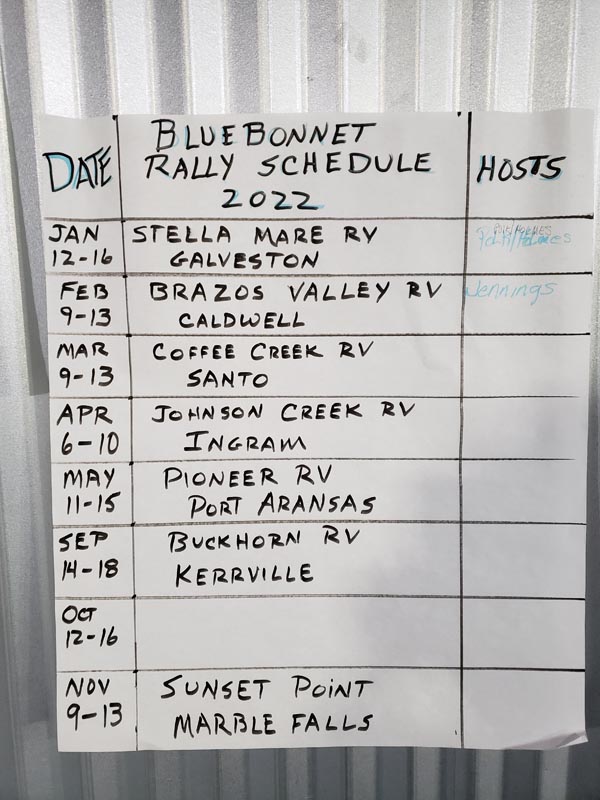 DATE
BLUEBONNET
RALLY SCHEDULE
2022
HOSTS
JAN
12-16
STELLA MARE RV
GALVESTON
FEB
9-13
BRAZOS VALLEY RV
CALDWELL
Jennings
MAR
9-13
COFFEE CREEK RV
SANTO
APR
6-10
JOHNSON CREEK RV
INGRAM
MAY
11-15
PIONEER RV
PORT ARANSAS
SEP
14-18
BUCKHORN RV
KERRVILLE
OCT
12-16
NOV
9-13
SUNSET POINT
MARBLE FALLS